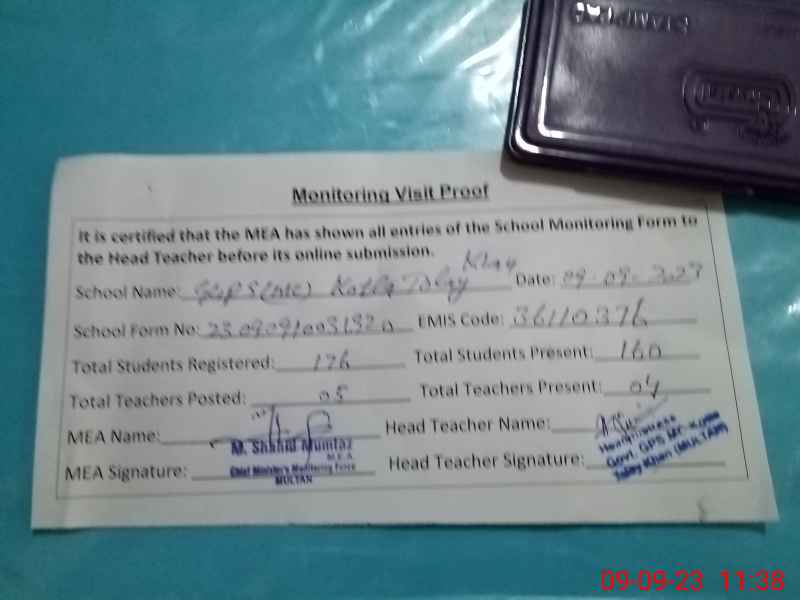 STAMP PAD
Monitoring Visit Proof
It is certified that the MEA has shown all entries of the School Monitoring Form to
the Head Teacher before its online submission.
School Name: GGPS (MC) Kotla Tolay Khan Date: 09-09-2023
School Form No: EMIS Code: 36110376
Total Students Registered: 176 Total Students Present: 160
Total Teachers Posted: 05 Total Teachers Present: 04
MEA Name: Head Teacher Name:
M. Shahid Mumtaz
M.E.A
MEA Signature: Head Teacher Signature:
Chief Minister's Monitoring Force
MULTAN
Headmistress
Govt. GPS MC Kotla
Tolay Khan (MULTAN)
09-09-23 11:38